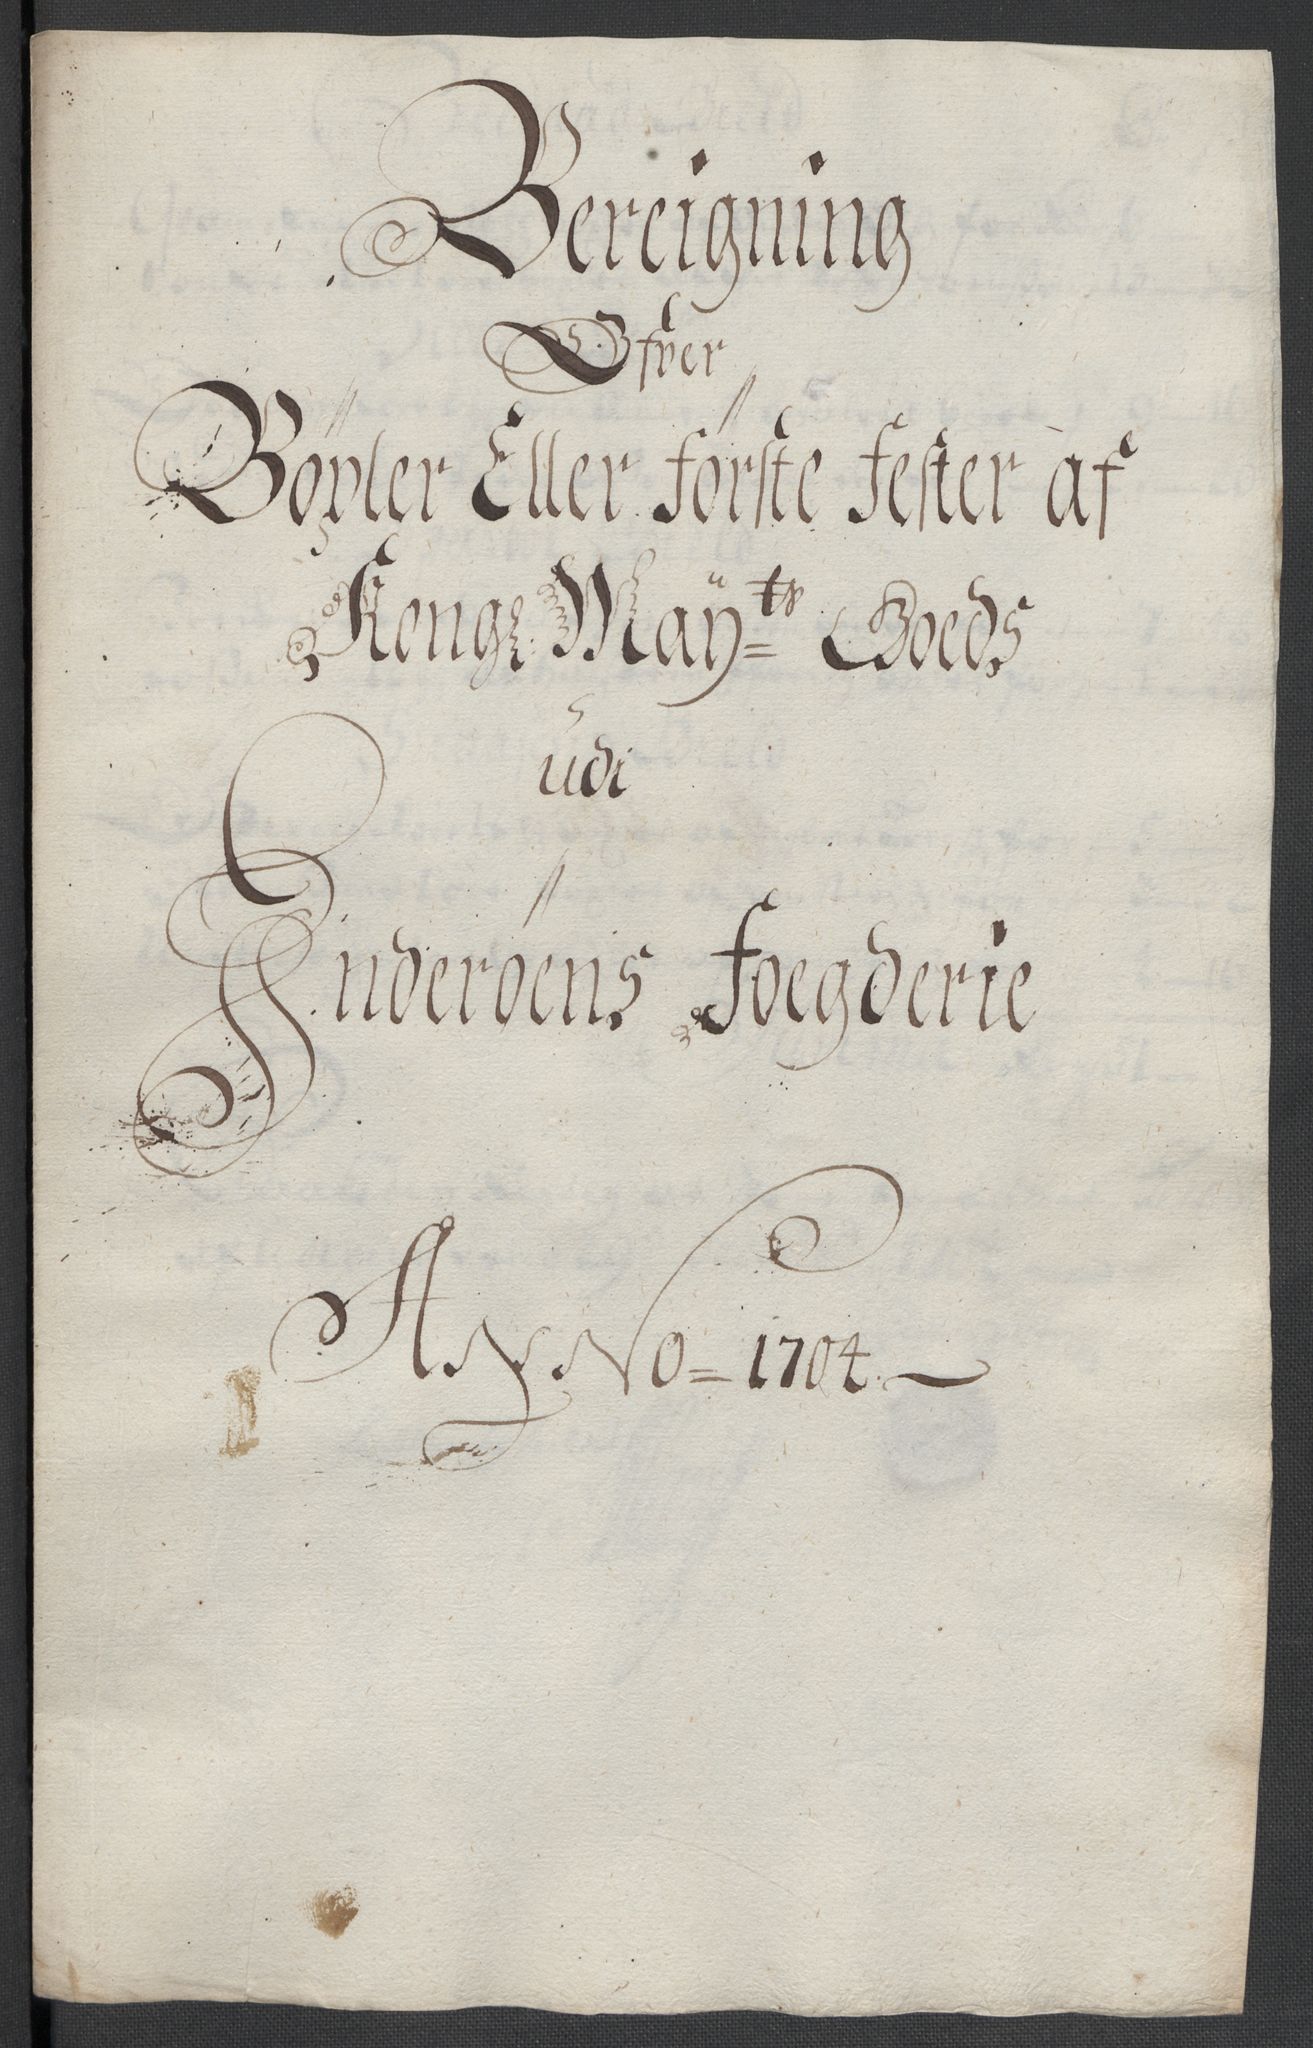 Bereigning
Ofver
Böxler Eller förste fester af
Kongl: Maÿ=ts Goeds
udi
Inderöens Foegderie
Anno = 1704.